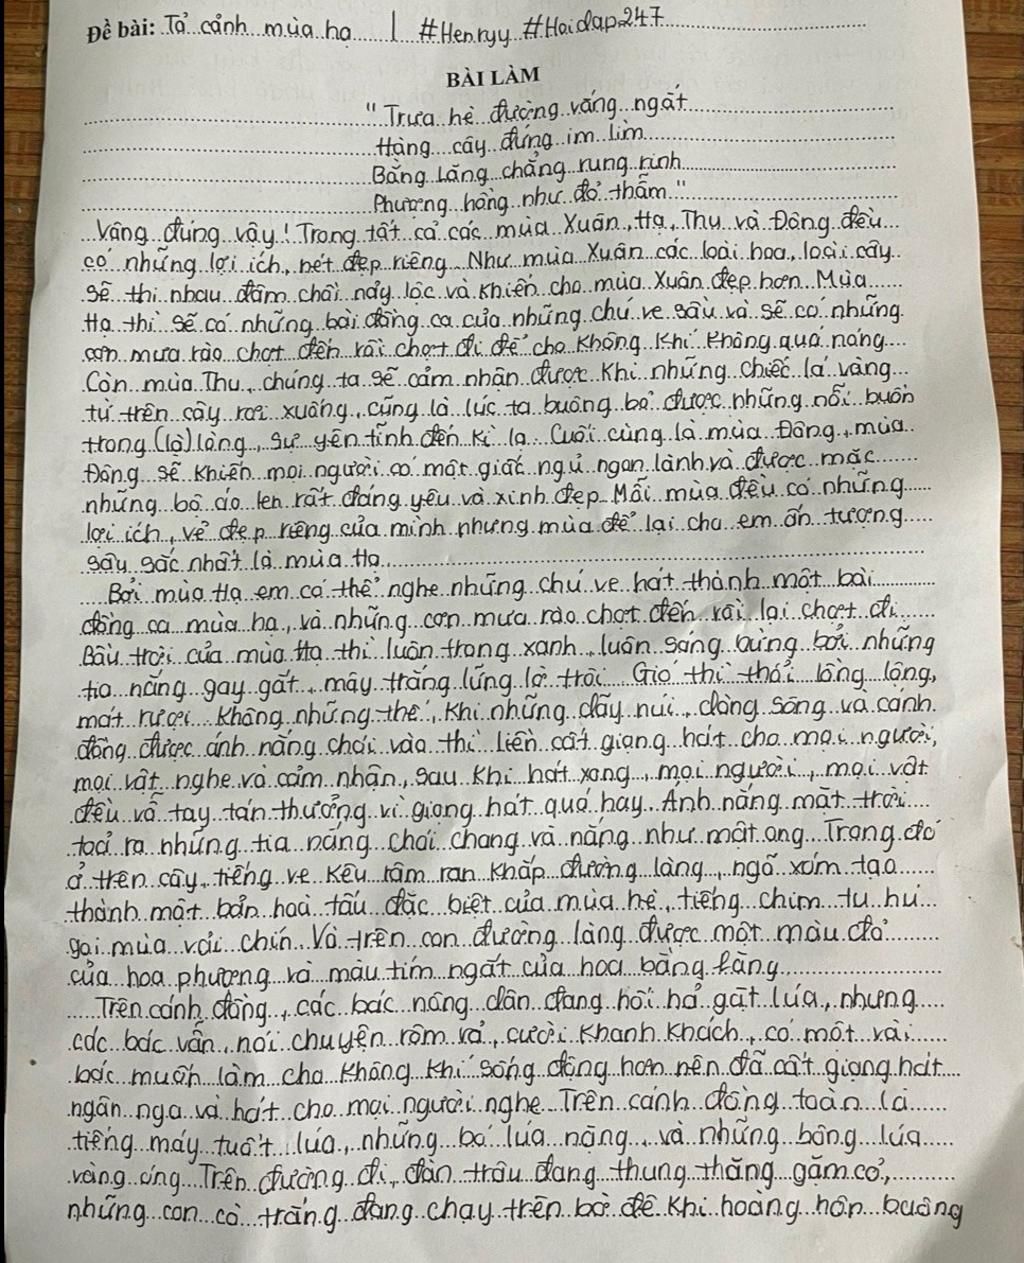 Đề bài: Tả cảnh mùa hạ | #Henryy #Hoidap247
BÀI LÀM
"Trưa hè đường vắng ngắt
Hàng cây đứng im lìm
Bằng Lăng chẳng rung rinh
Phượng hồng như đỏ thẫm"
Vâng đúng vậy! Trong tất cả các mùa Xuân, Hạ, Thu và Đông đều
có những lợi ích, nét đẹp riêng. Như mùa Xuân các loài hoa, loài cây
sẽ thi nhau đâm chồi nảy lộc và khiến cho mùa Xuân đẹp hơn. Mùa
Hạ thì sẽ có những bài đồng ca của những chú ve sầu và sẽ có những
cơn mưa rào chợt đến rồi chợt đi để cho không khí không quá nóng
Còn mùa Thu, chúng ta sẽ cảm nhận được khi những chiếc lá vàng
từ trên cây rơi xuống, cũng là lúc ta buông bỏ được những nỗi buồn
trong (lò) lòng, sự yên tĩnh đến kì lạ. Cuối cùng là mùa Đông, mùa
Đông sẽ khiến mọi người có một giấc ngủ ngon lành và được mặc
những bộ áo len rất đáng yêu và xinh đẹp. Mỗi mùa đều có những
lợi ích, vẻ đẹp riêng của mình nhưng mùa để lại cho em ấn tượng
sâu sắc nhất là mùa Hạ.
Bởi mùa Hạ em có thể nghe những chú ve hát thành một bài
đồng ca mùa hạ, và những cơn mưa rào chợt đến rồi lại chợt đi
Bầu trời của mùa Hạ thì luôn trong xanh, luôn sáng bừng bởi những
tia nắng gay gắt, mây trắng lững lờ trôi. Gió thì thổi lồng lộng,
mát rượi. Không những thế, khi những dãy núi, dòng sông và cánh
đồng được ánh nắng chói vào thì liền cất giọng hát cho mọi người,
mọi vật nghe và cảm nhận, sau khi hát xong, mọi người, mọi vật
đều vỗ tay tán thưởng vì giọng hát quá hay. Ánh nắng mặt trời
toả ra những tia nắng chói chang và nắng như mật ong. Trong đó
ở trên cây, tiếng ve kêu râm ran khắp đường làng, ngõ xóm tạo
thành một bản hoà tấu đặc biệt của mùa hè, tiếng chim tu hú
gọi mùa vải chín. Và trên con đường làng được một màu đỏ
của hoa phượng và màu tím ngắt của hoa bằng lăng.
Trên cánh đồng, các bác nông dân đang hối hả gặt lúa, nhưng
các bác vẫn nói chuyện rôm rả, cười khanh khách, có một vài
bác muốn làm cho không khí sống động hơn nên đã cất giọng hát
ngân nga và hát cho mọi người nghe. Trên cánh đồng toàn là
tiếng máy tuốt lúa, những bó lúa nặng, và những bông lúa
vàng óng. Trên đường đi, đàn trâu đang thung thăng gặm cỏ,
những con cò trắng đang chạy trên bờ đê. Khi hoàng hôn buông